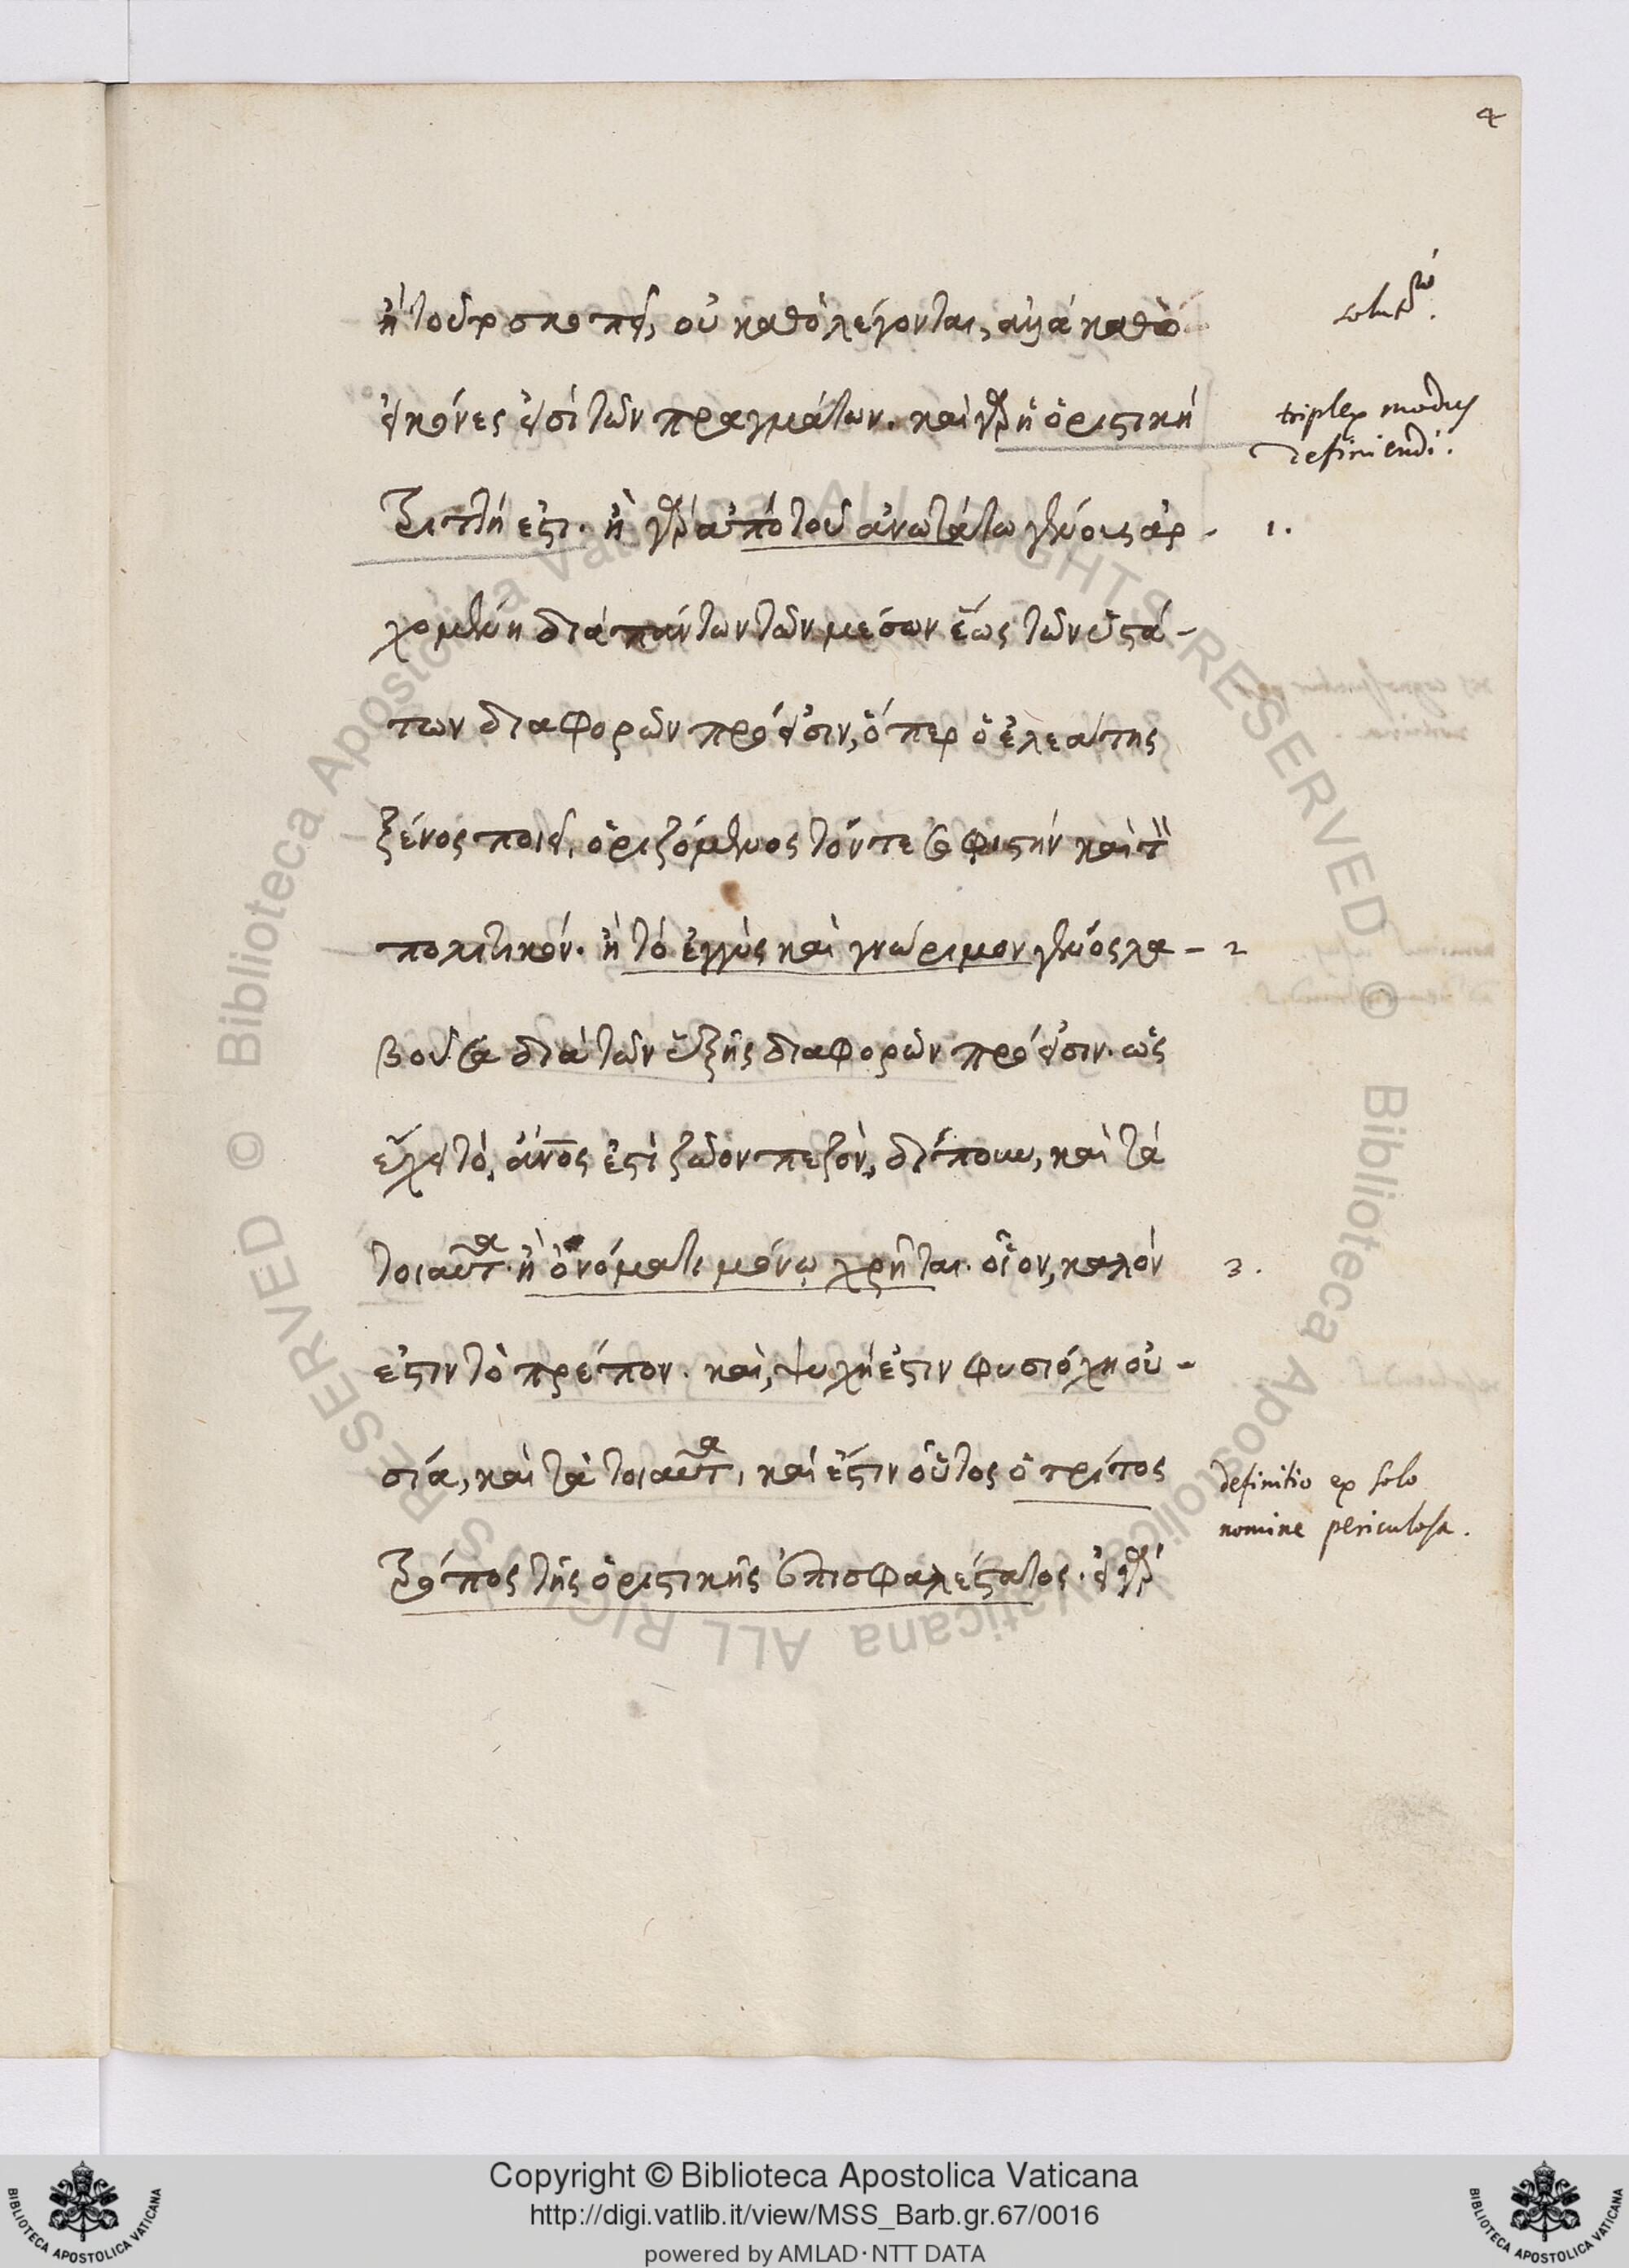 4
solutio.
ἢ τοῦδε σκοπεῖ, οὐ καθὸ λέγονται, ἀλλὰ καθὸ
εἰκόνες εἰσὶ τῶν πραγμάτων. καὶ γὰρ ἡ ὁριστικὴ
triplex modus
definiendi.
τριττή ἐστι. ἢ γὰρ ἀπὸ τοῦ ἀνωτάτω γένους ἀρ- 1.
χομένη διὰ πάντων τῶν μέσων ἕως τῶν ἐσχά-
των διαφορῶν πρόεισιν, ὅπερ ὁ ἐλεάτης
ξένος ποιεῖ, ὁριζόμενος τόν τε σοφιστὴν καὶ τὸν
πολιτικόν. ἢ τὸ ἐγγὺς καὶ γνώριμον γένος λα- 2
βοῦσα διὰ τῶν ἑξῆς διαφορῶν πρόεισιν. ὡς
ἔχει τὸ, ἄνος ἐστὶ ζῶον πεζὸν, δίπουν, καὶ τὰ
τοιαῦτα. ἢ ὀνόματι μόνῳ χρῆται. οἷον, καλόν 3.
ἐστιν τὸ πρέπον. καὶ, ψυχή ἐστιν φυσιόχη οὐ-
σία, καὶ τὰ τοιαῦτα, καὶ ἔστιν οὗτος ὁ τρίτος
definitio ex solo
nomine periculosa.
τρόπος τῆς ὁριστικῆς ἐπισφαλέστατος. εἰ γὰρ
Copyright © Biblioteca Apostolica Vaticana
http://digi.vatlib.it/view/MSS_Barb.gr.67/0016
powered by AMLAD·NTT DATA
BIBLIOTECA APOSTOLICA VATICANA
BIBLIOTECA APOSTOLICA VATICANA
Biblioteca Apostolica Vaticana ALL RIGHTS RESERVED ©
Biblioteca Apostolica Vaticana ALL RIGHTS RESERVED ©